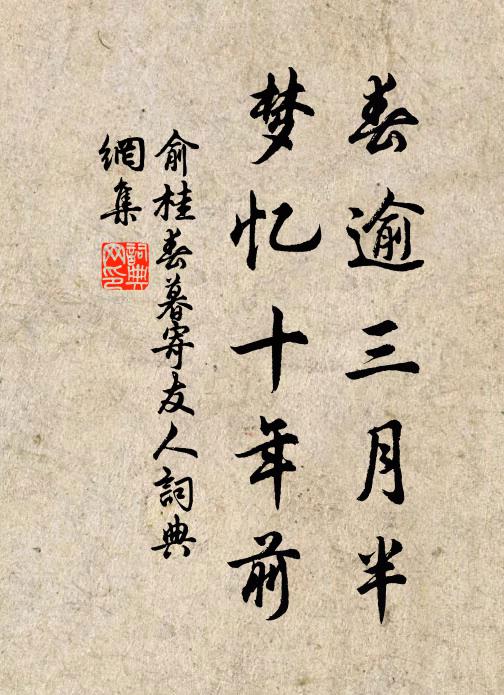 春逾三月半
梦忆十年前
俞桂春暮寄友人詞典
網集
詞典
网印